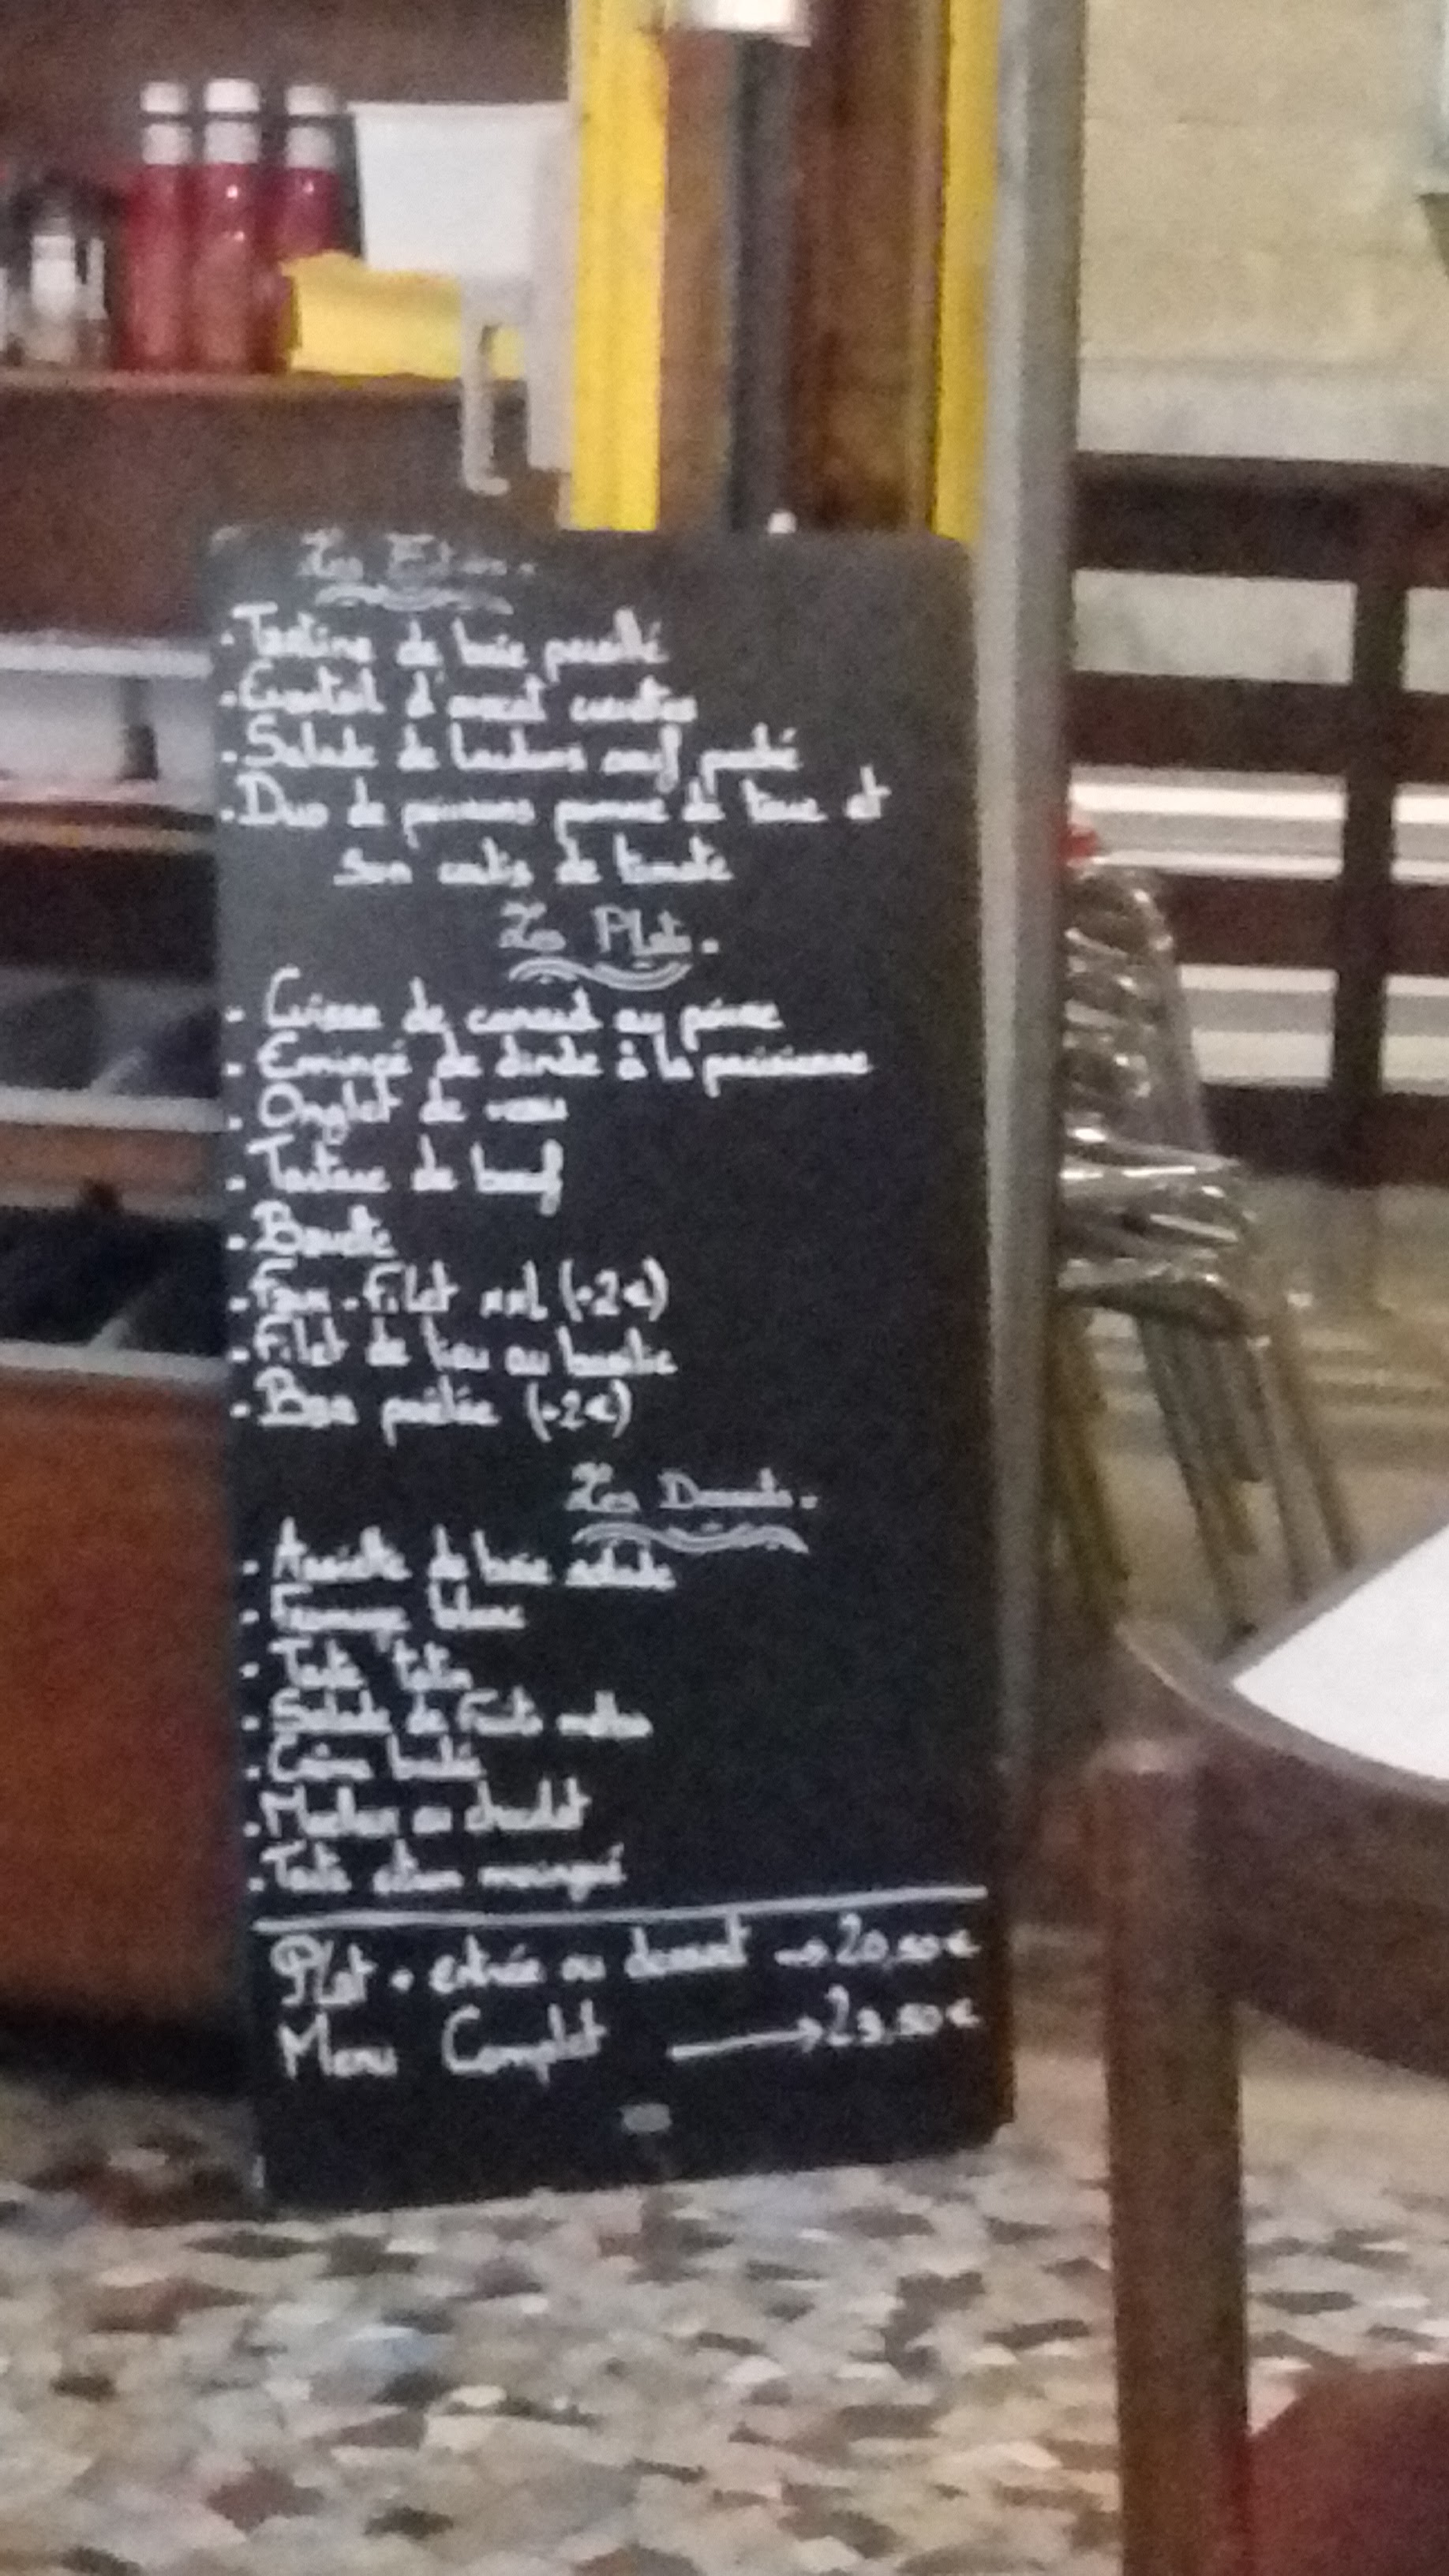 Les Entrées.
- Tartine de brie persillé
- Cocktail d'avocat crevettes
- Salade de lardons oeuf poché
- Duo de poissons pomme de terre et
son coulis de tomate
Les Plats.
- Cuisse de canard au poivre
- Emincé de dinde à la parisienne
- Onglet de veau
- Tartare de boeuf
- Bavette
- Faux-Filet xxl (+2€)
- Filet de lieu au basilic
- Bar poêlée (+2€)
Les Desserts.
- Assiette de brie salade
- Fromage blanc
- Tarte tatin
- Salade de Fruits
- Crème brulée
- Moelleux au chocolat
- Tarte citron meringué
Plat + entrée ou dessert → 20,00€
Menu Complet → 23,50€